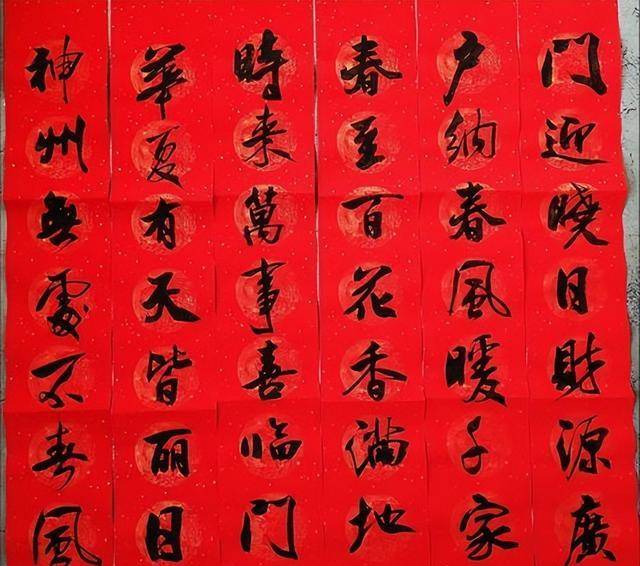 門迎曉日財源廣
户納春風暖千家
春至百花香滿地
時来萬事喜臨門
華夏有天皆丽日
神州無處不春風